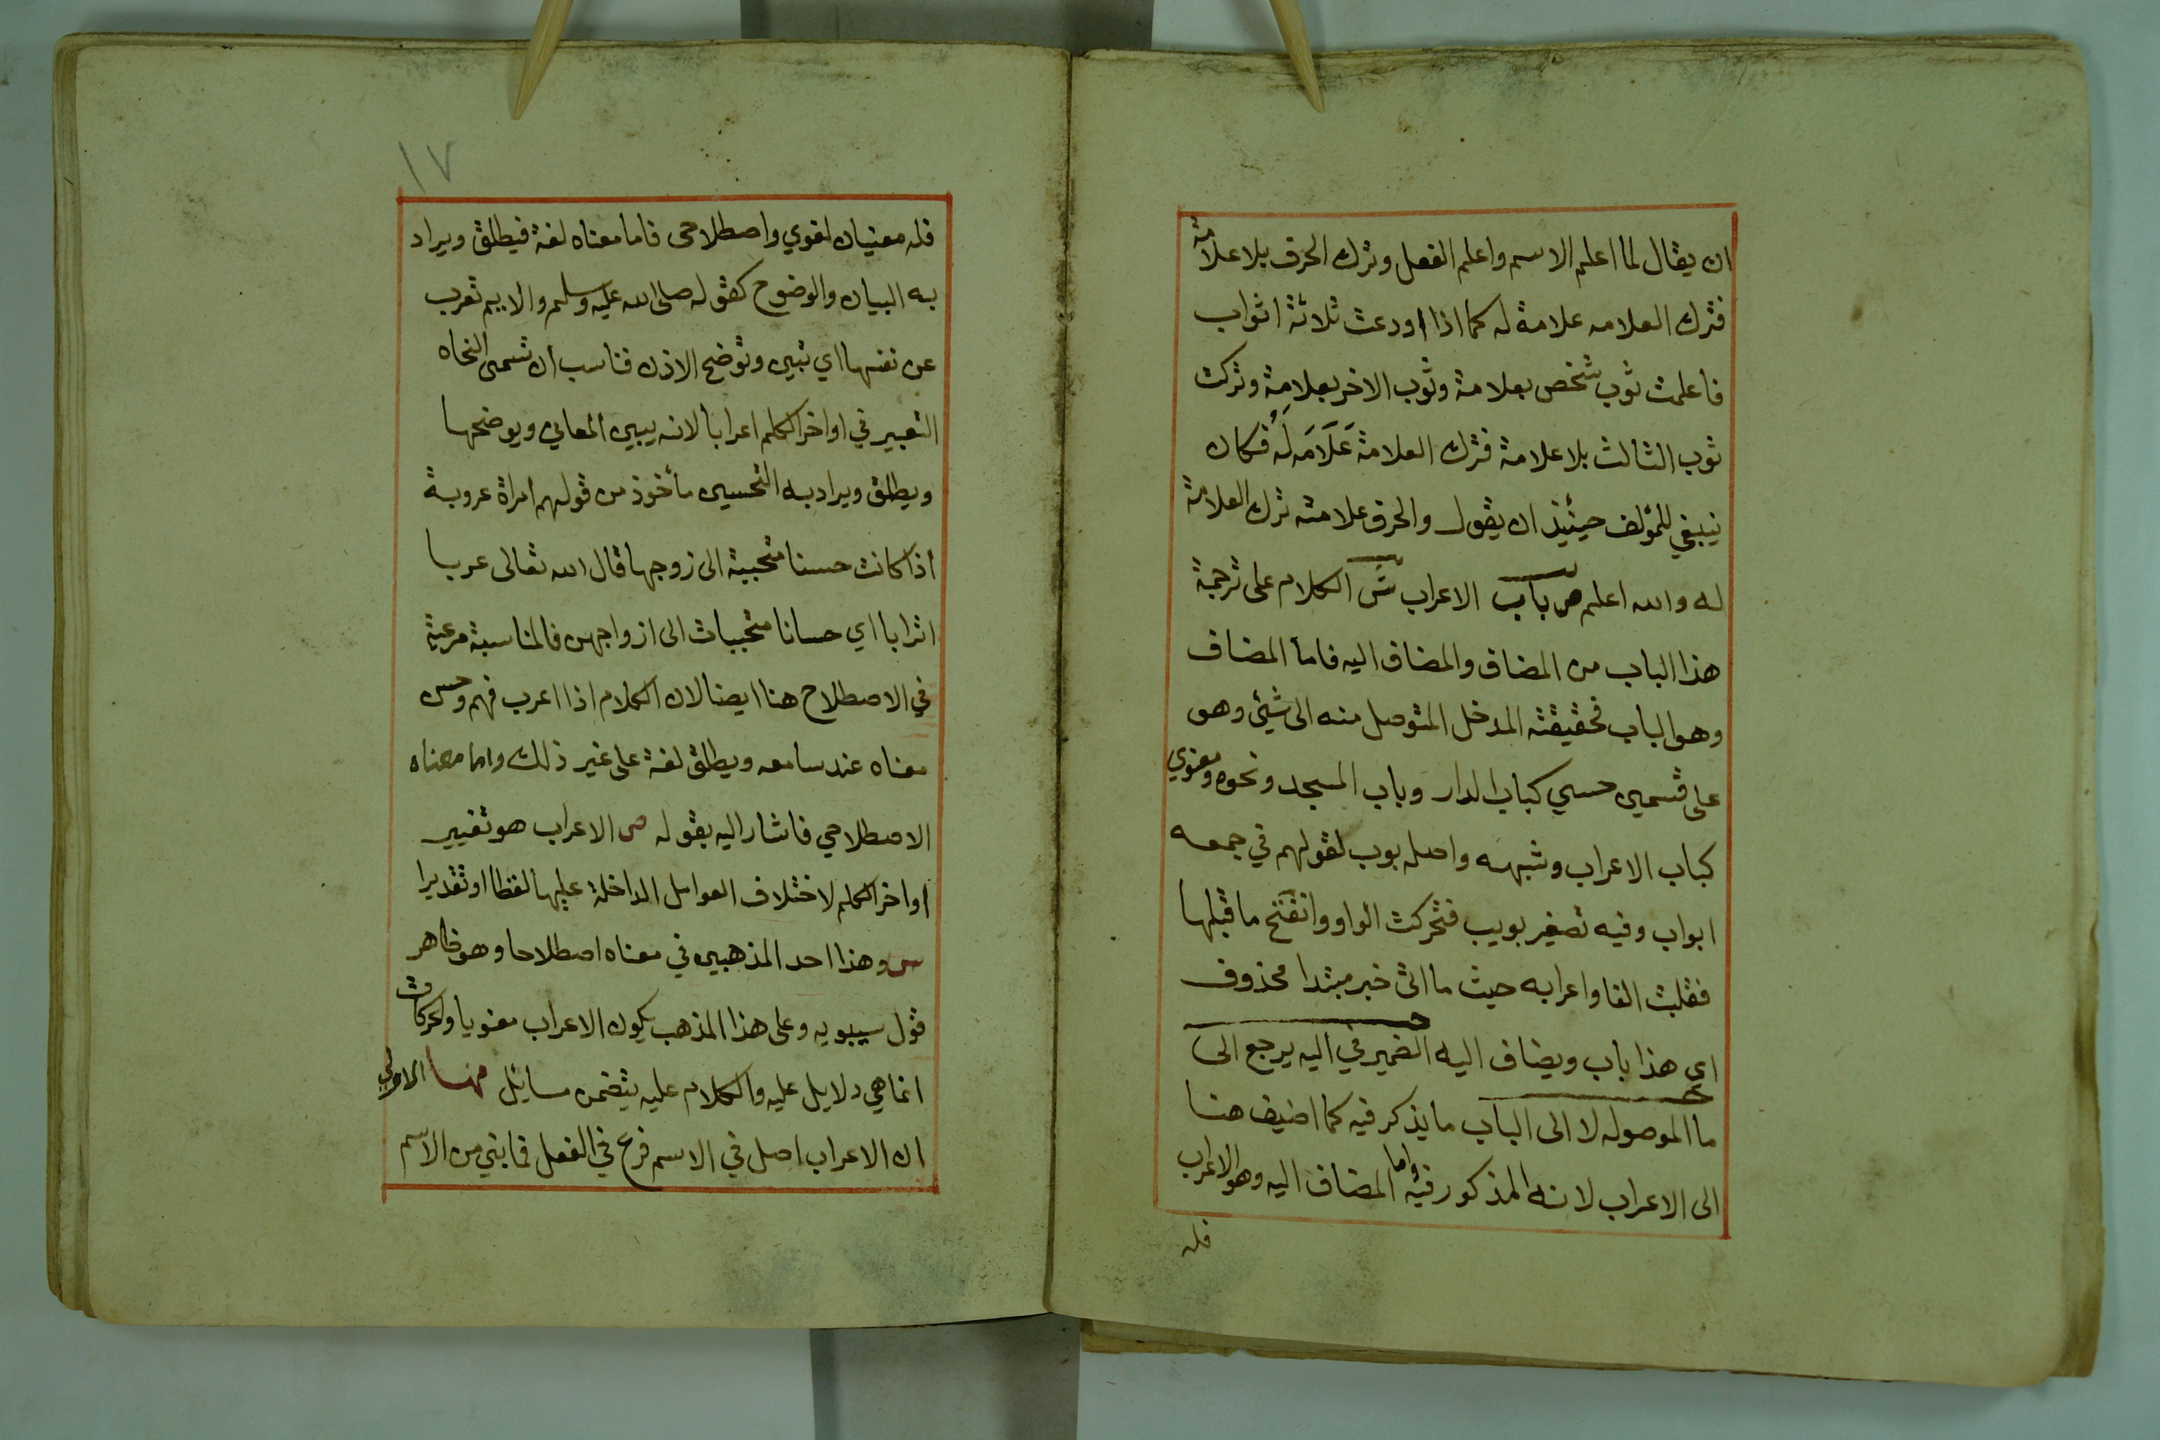 ان يقال لما اعلم الاسم واعلم الفعل وترك الحرف بلا علامة
فترك العلامه علامة له كما اذا اودعت ثلاثة اثواب
فاعلمت ثوب شخص بعلامة وثوب الاخر بعلامة وتركت
ثوب الثالث بلا علامة فترك العلامة عَلَامَه لَهُ فكان
ينبغي للمؤلف حينئذ ان يقول والحرف علامته ترك العلامة
له والله اعلم ص باب الاعراب ش الكلام على ترجمة
هذا الباب من المضاف والمضاف اليه فاما المضاف
وهو الباب فحقيقته المدخل المتوصل منه الى شيئ وهو
على قسمين حسي كباب الدار وباب المسجد ونحوه ومعنوي
كباب الاعراب وشبهه واصله بوب لقولهم في جمعه
ابواب وفيه تصغير بويب فتحركت الواو وانفتح ما قبلها
فقلبت الفا واعرابه حيث ما اتى خبر مبتدا محذوف
اي هذا باب ويضاف اليه الضمير في اليه يرجع الى
ما الموصوله لا الى الباب ما يذكر فيه كما اضيف هنا
الى الاعراب لانه المذكور فيه واما المضاف اليه وهو الاعراب
فله
١٧
فله معنيان لغوي واصطلاحى فاما معناه لغة فيطلق ويراد
به البيان والوضوح كقوله صلى الله عليه وسلم والايم تعرب
عن نفسها اي تبين وتوضح الاذن فناسب ان تسمى النحاه
التعبير في اواخر الكلم اعرابا لانه يبين المعاني ويوضحها
ويطلق ويراد به التحسين مأخوذ من قولهم امراة عروبة
اذا كانت حسنا متحببة الى زوجها قال الله تعالى عربا
اترابا اي حسانا متحببات الى ازواجهن فالمناسبة مرعية
في الاصطلاح هنا ايضا لان الكلام اذا اعرب فهم وحسن
معناه عند سامعه ويطلق لغة على غير ذلك واما معناه
الاصطلاحي فاشار اليه بقوله ص الاعراب هو تغيير
اواخر الكلم لاختلاف العوامل الداخلة عليها لفظا او تقديرا
ش وهذا احد المذهبين في معناه اصطلاحا وهو ظاهر
قول سيبويه وعلى هذا المذهب يكون الاعراب معنويا والحركات
انما هي دلايل عليه والكلام عليه يتضمن مسايل منها الاولى
ان الاعراب اصل في الاسم فرع في الفعل فما بني من الاسم